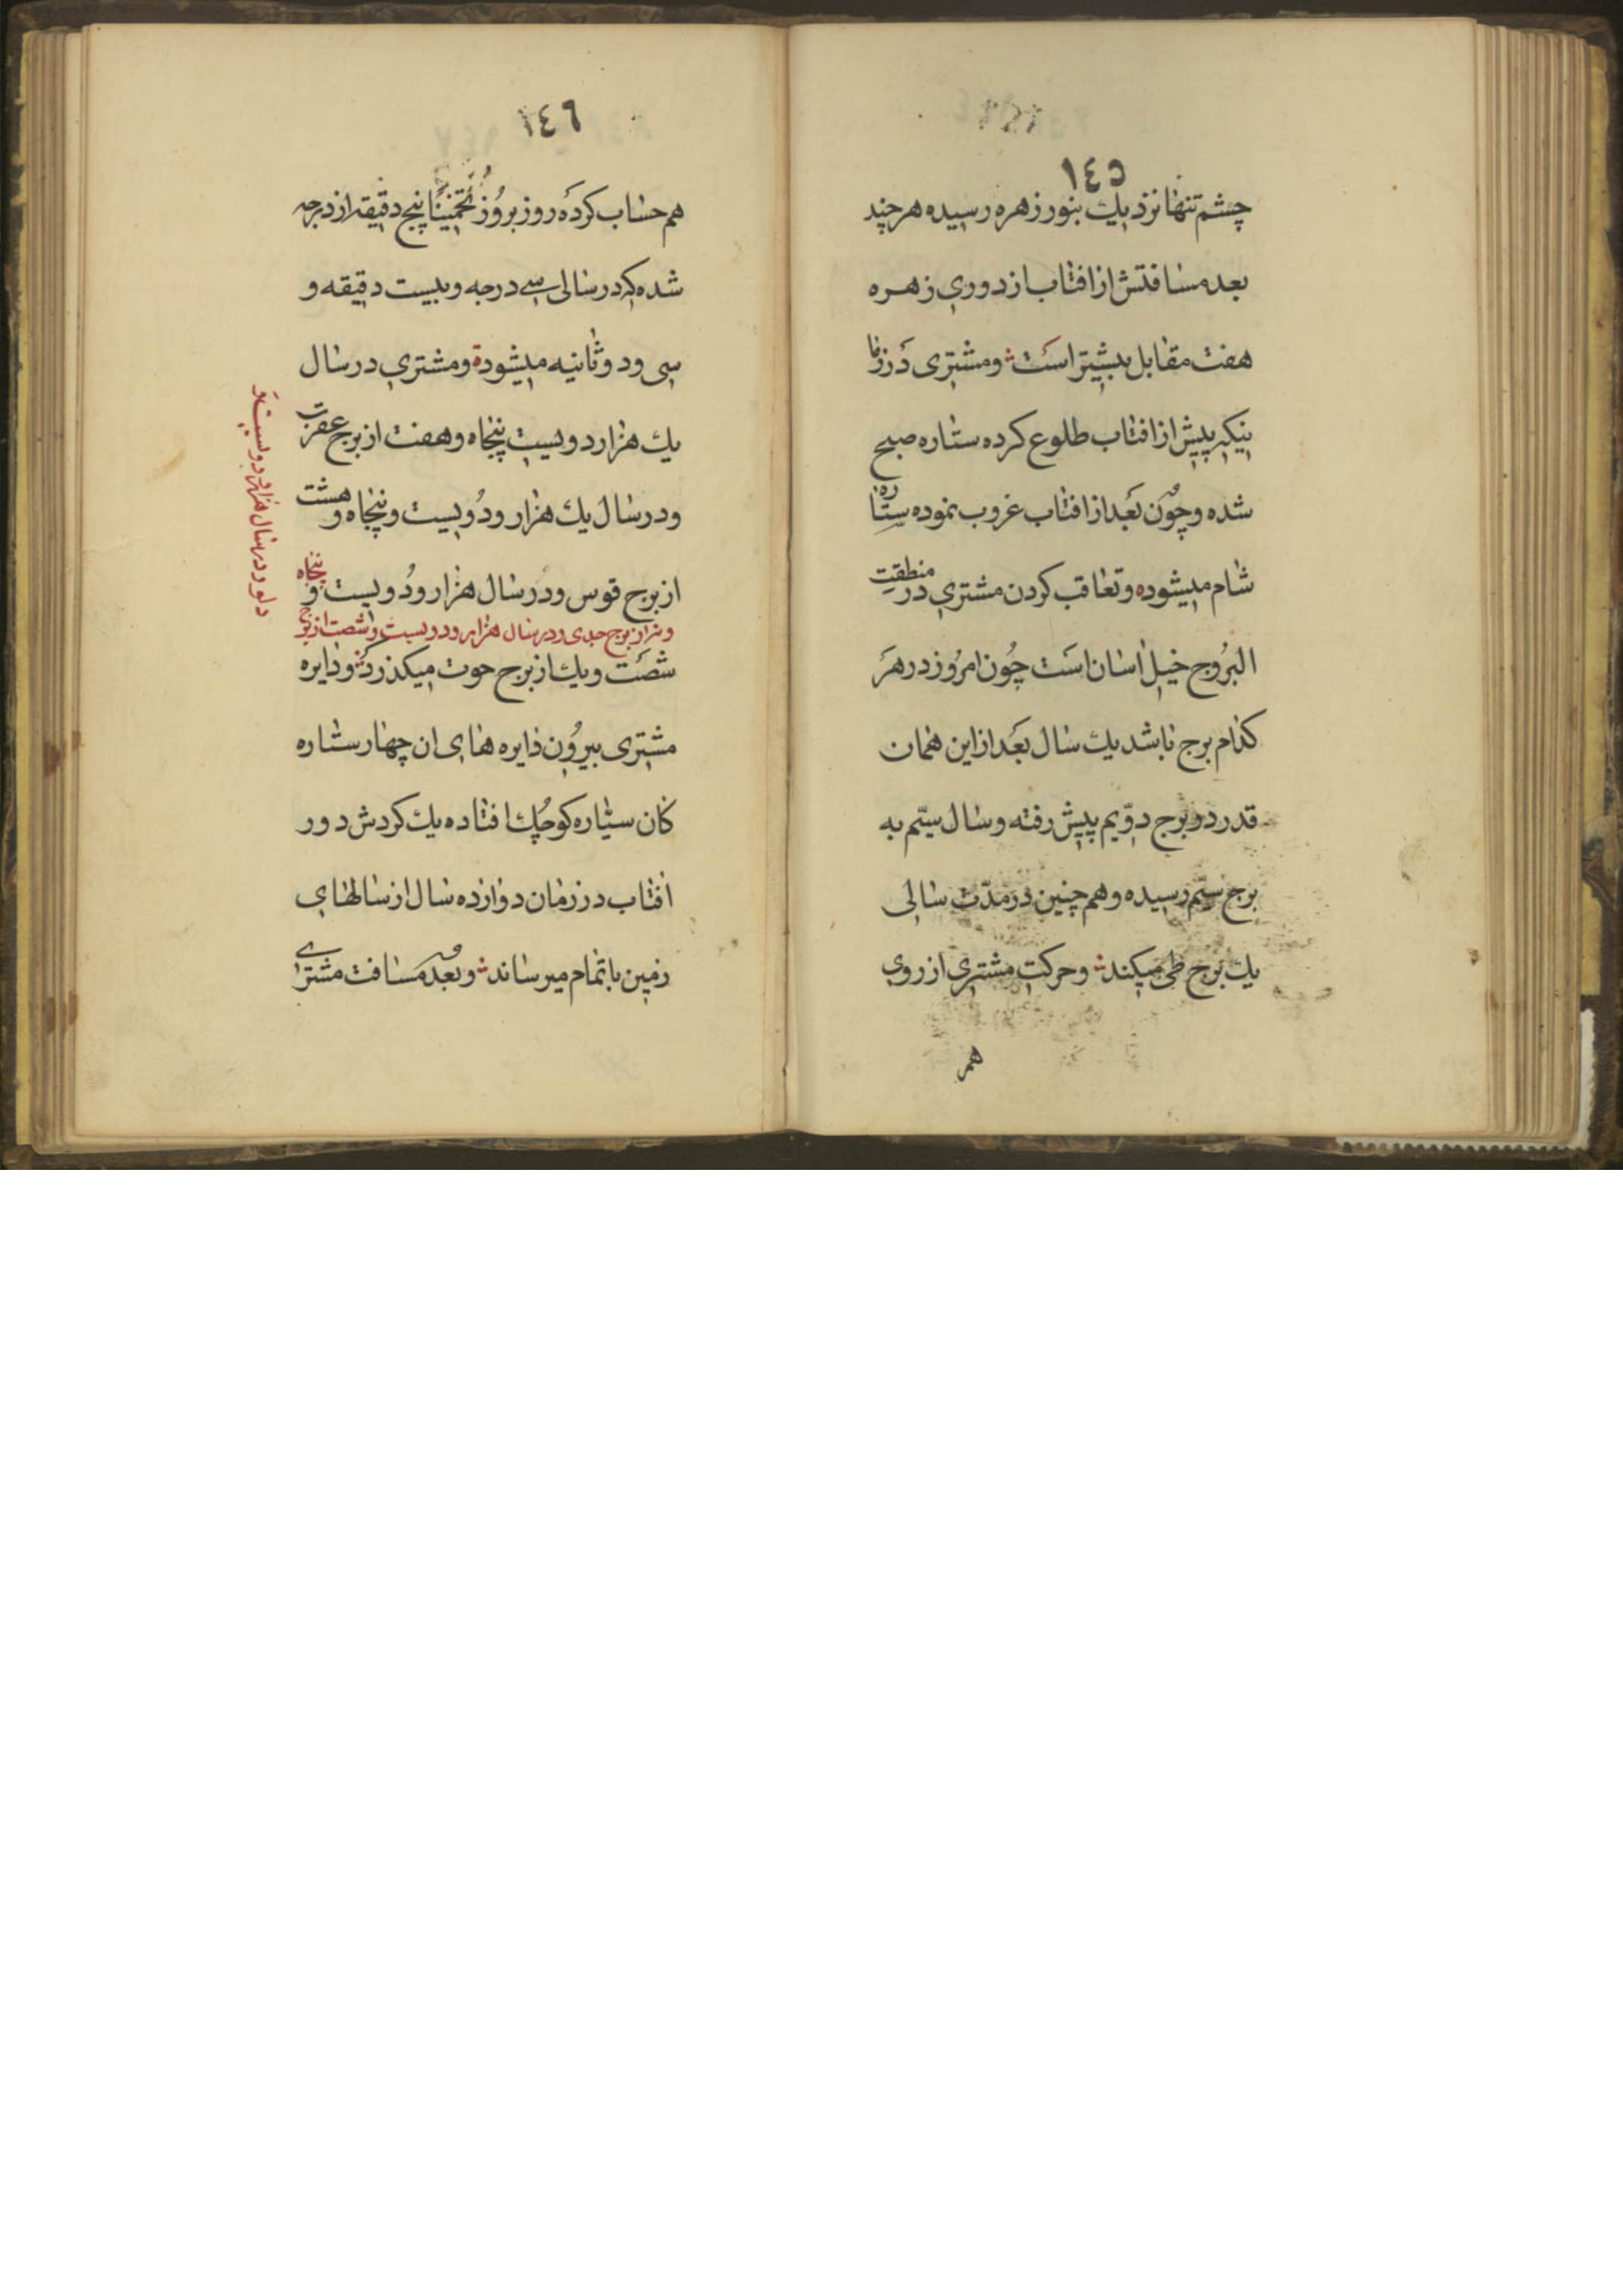 ١٤٥
چشم تنها نزدیك بنور زهره رسیده هر چند
بعد مسافتش از افتاب از دوری زهره
هفت مقابل بیشتر است و مشتری در زما
نیکه پیش از افتاب طلوع کرده ستاره صبح
شده و چون بعد از افتاب غروب نموده ستاره
شام میشوده و تعاقب کردن مشتری در منطقت
البروج خیلی اسان است چون امروز در هر
کدام برج باشد یك سال بعد از این همان
قدر در برج دوّیم پیش رفته و سال سیّم به
برج سیّم رسیده و هم چنین در مدّت سالی
یك برج طی میکند و حرکت مشتری از روی
هم
١٤٦
هم حساب کرده روز بروز تخمیناً پنج دقیقه از درجه
شده که در سالی سی درجه و بیست دقیقه و
سی و دو ثانیه میشوده و مشتری در سال
یك هزار دویست پنجاه و هفت از برج عقرب
و در سال یك هزار و دویست و پنجاه و هشت
از برج قوس و در سال هزار و دویست و پنجاه
و نه از برج جدی و در سال هزار و دویست و شصت از برج
دلو و در سال هزار و دویست و
شصت و یك از برج حوت میکذرد و دایره
مشتری بیرون دایره های ان چهار ستاره
کان سیّاره کوچك افتاده یك کردش دور
افتاب در زمان دوازده سال از سالهای
زمین باتمام میرساند و بعد مسافت مشتری